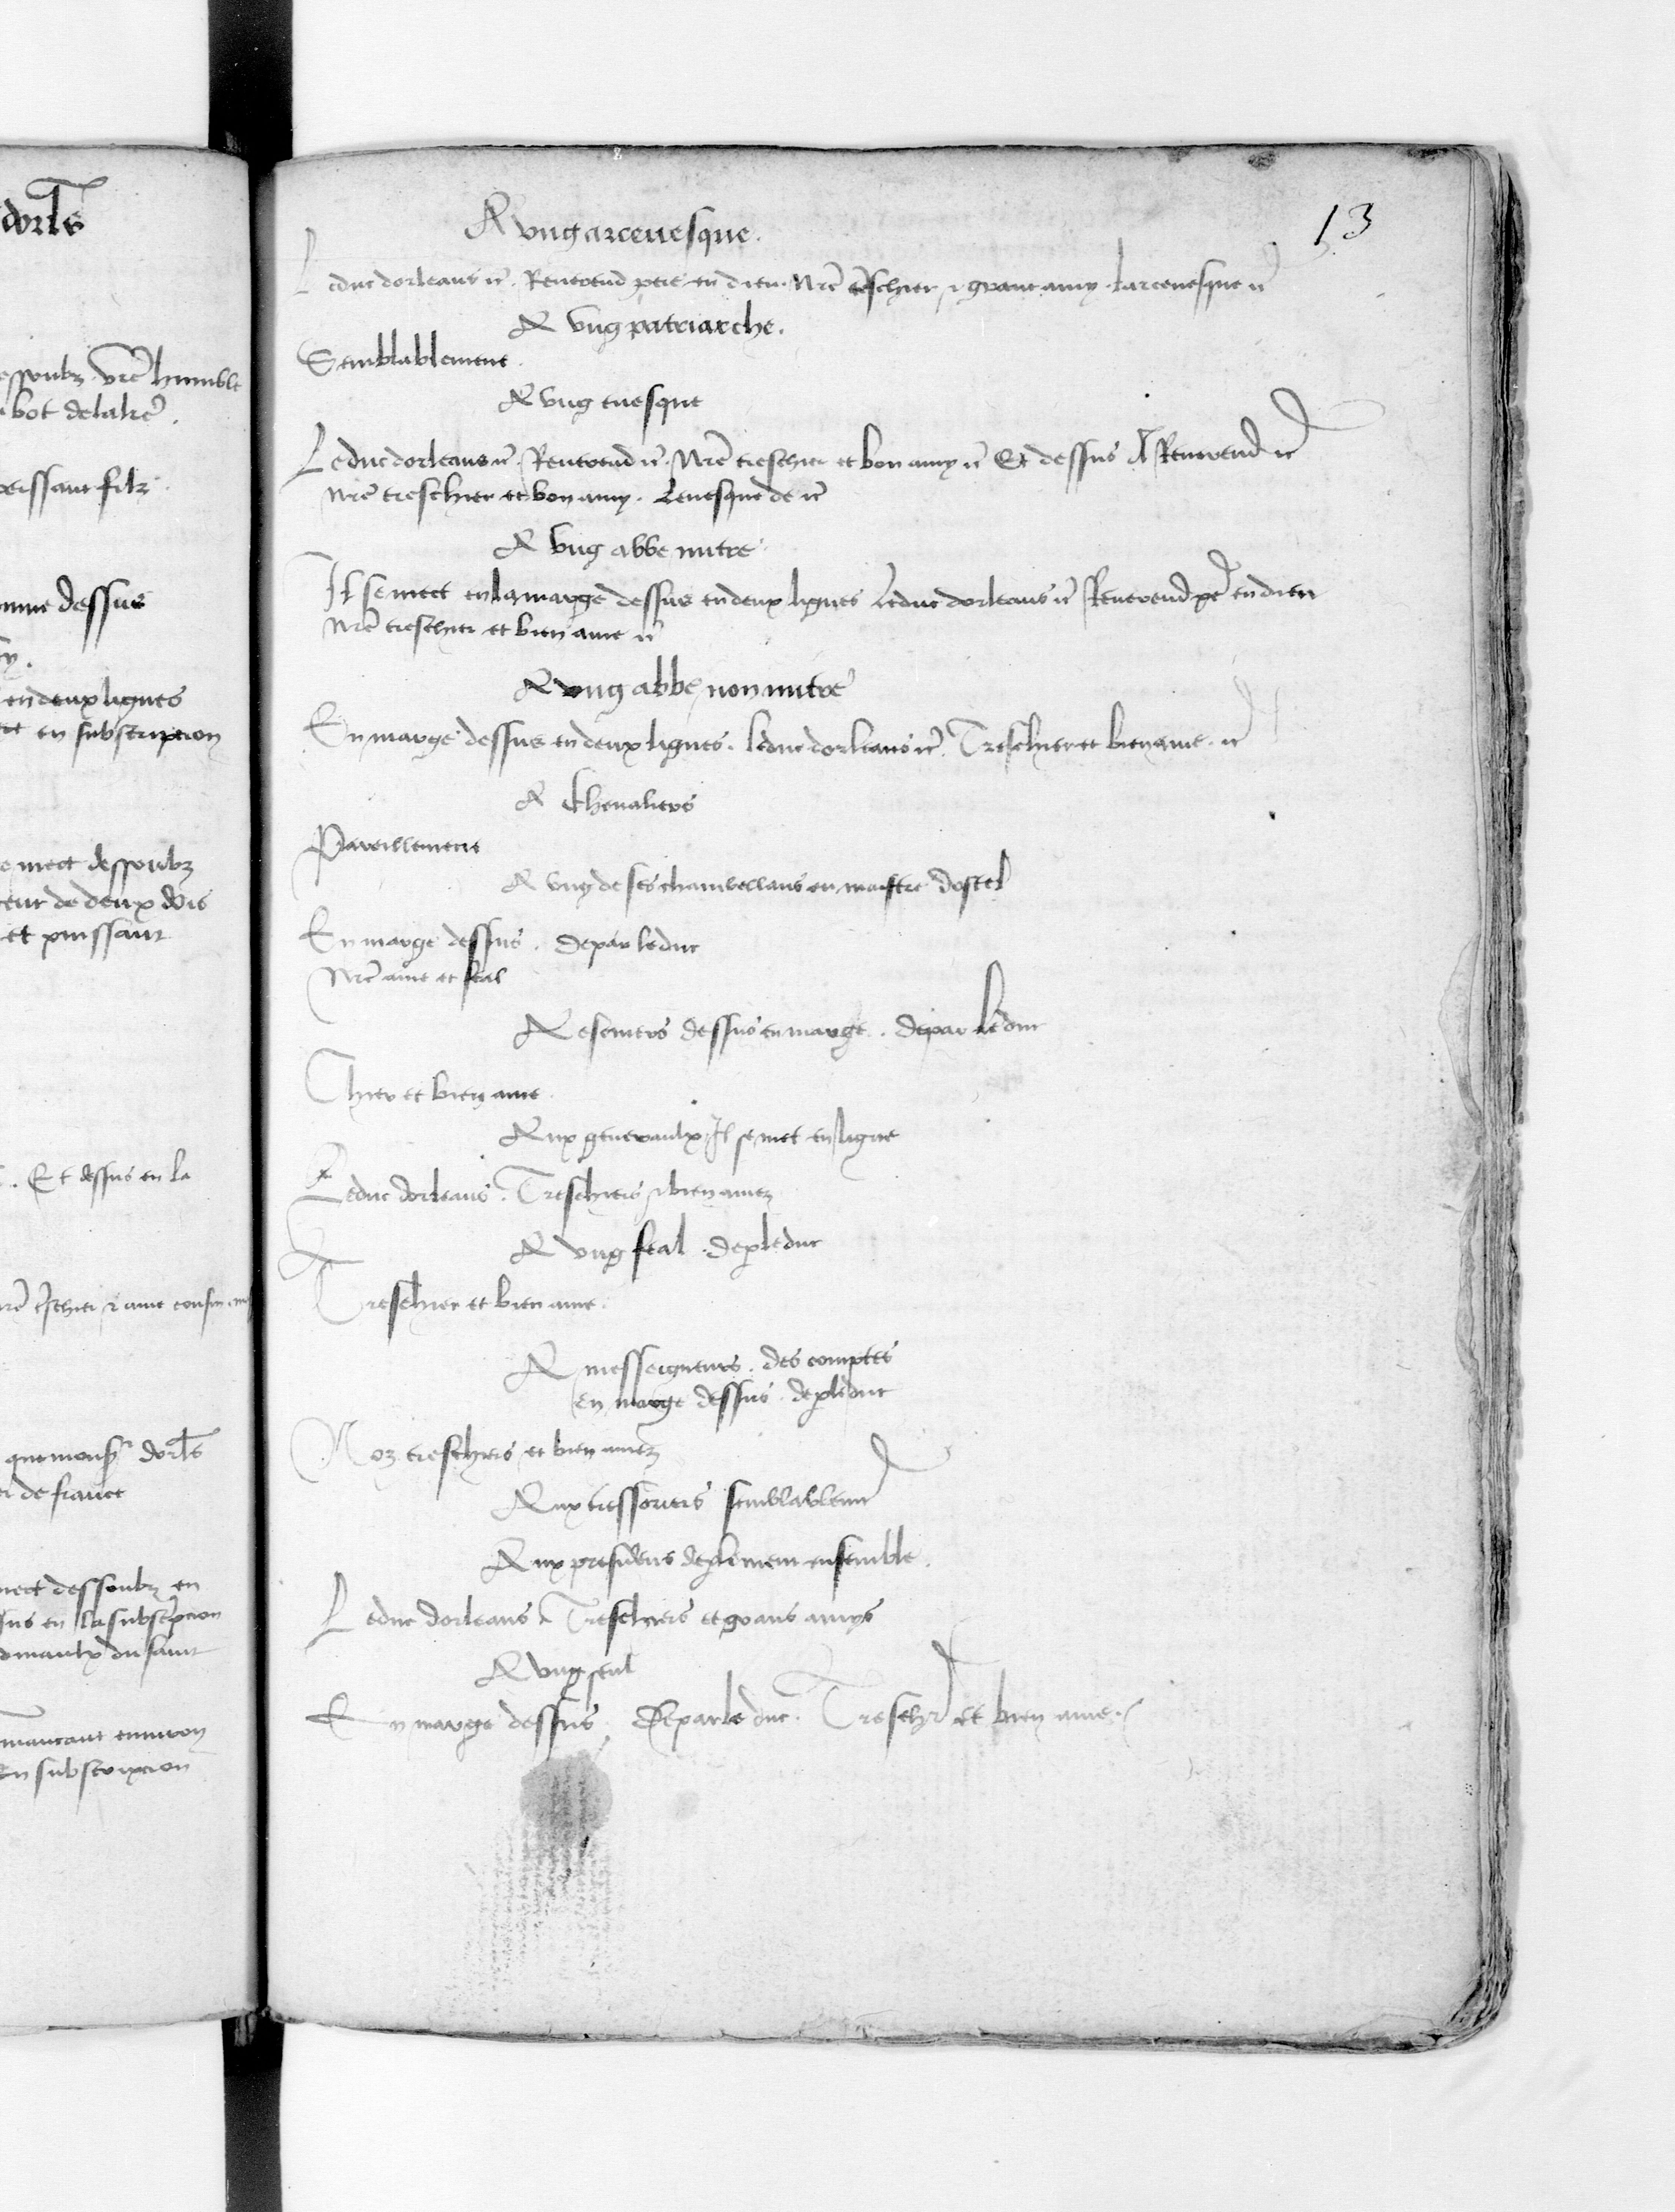 dorl̃s
essoubz vr̃e humble
bot delaliẽ.
puissant filz
comme dessus
endeux lignes
et en subscripcion
mect dessoubz
de deux dois
et puissant
. Et dessus en la
nr̃e tr̃schier ⁊ ame cousin
que monsr̃ dorl̃s
de france
mect dessoubz en
en la subscripcion
du saint
environ
En subscripcion
13
A ung arcevesque.
Leduc dorleans ⁊c̃. Reverend pere en dieu. Nr̃e tr̃schier ⁊ grant amy. larcevesque ⁊c̃
A ung patriarche.
Semblablement.
A ung evesque
Leduc dorleans ⁊c̃. Reverend ⁊c̃. Nr̃e treschier et bon amy ⁊c̃ Et dessus A Reverend ⁊c̃
nr̃e treschier et bon amy. Levesque de ⁊c̃
A ung abbe mitre
Il se mect en la marge dessus en deux lignes Leduc dorleans ⁊c̃ Reverend pe᷑ en dieu
Nr̃e treschier et bien ame ⁊c̃
A ung abbe non mitre
En marge dessus en deux lignes. leduc dorleans ⁊c̃. Treschier et bien ame. ⁊c̃
A Chevaliers
Pareillement
A ung de ses chambellans ou maistre dostel
En marge dessus. depar leduc
Nr̃e ame et feal
A escuiers dessus en marge. depar leduc
Chier et bien ame.
Aux generaulx Il se met en ligne
Leduc dorleans. Treschiers ⁊ bien amez
A ung seal. dep̱ leduc
Treschier et bien ame.
A messeigneurs. des comptes
en marge dessus. dep̱ leduc
Noz treschiers et bien amez
Aux tressoriers semblablemt̃
Aux presidens dep̱lement ensemble.
Leduc dorleans Treschiers et grans amys
A ung seul
En marge dessus. Depar le duc. Treschr̃ et bien ame.